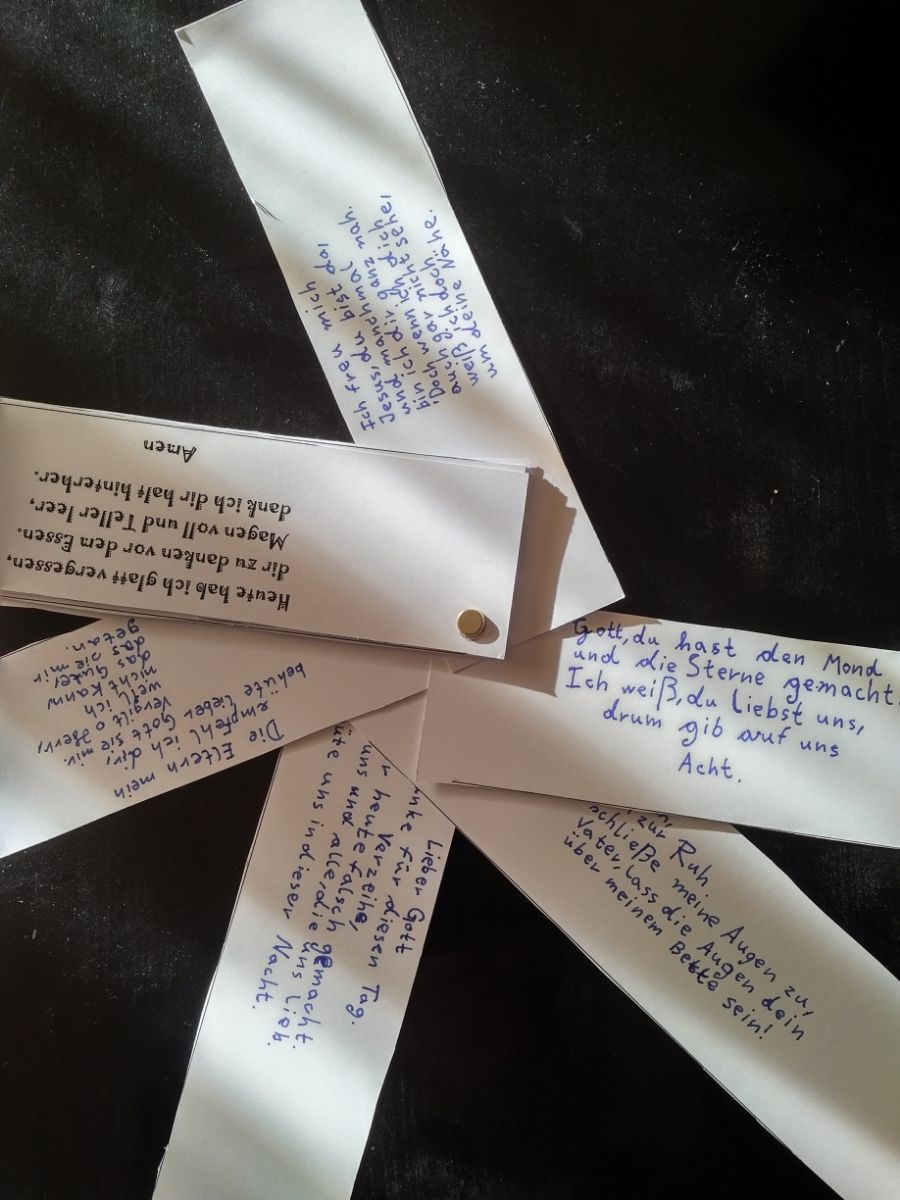 Ich freu mich
Jesus, du bist da,
und manchmal
bin ich dir ganz nah.
Doch wenn ich dich
auch gar nicht sehe,
weiß ich doch
um deine Nähe.
Heute hab ich glatt vergessen,
dir zu danken vor dem Essen.
Magen voll und Teller leer,
dank ich dir halt hinterher.
Amen
Gott, du hast den Mond
und die Sterne gemacht.
Ich weiß, du liebst uns,
drum gib auf uns
Acht.
zur Ruh
schließe meine Augen zu,
Vater, lass die Augen dein
über meinem Bette sein!
Lieber Gott
für diesen Tag.
Verzeihe,
heute falsch gemacht.
uns und alle, die uns lieb.
uns in dieser Nacht.
Die Eltern mein
empfehl ich dir,
behüte lieber
Gott sie mir.
Vergilt o Herr,
weil ich
nicht kann
das Gute,
das sie mir
getan.